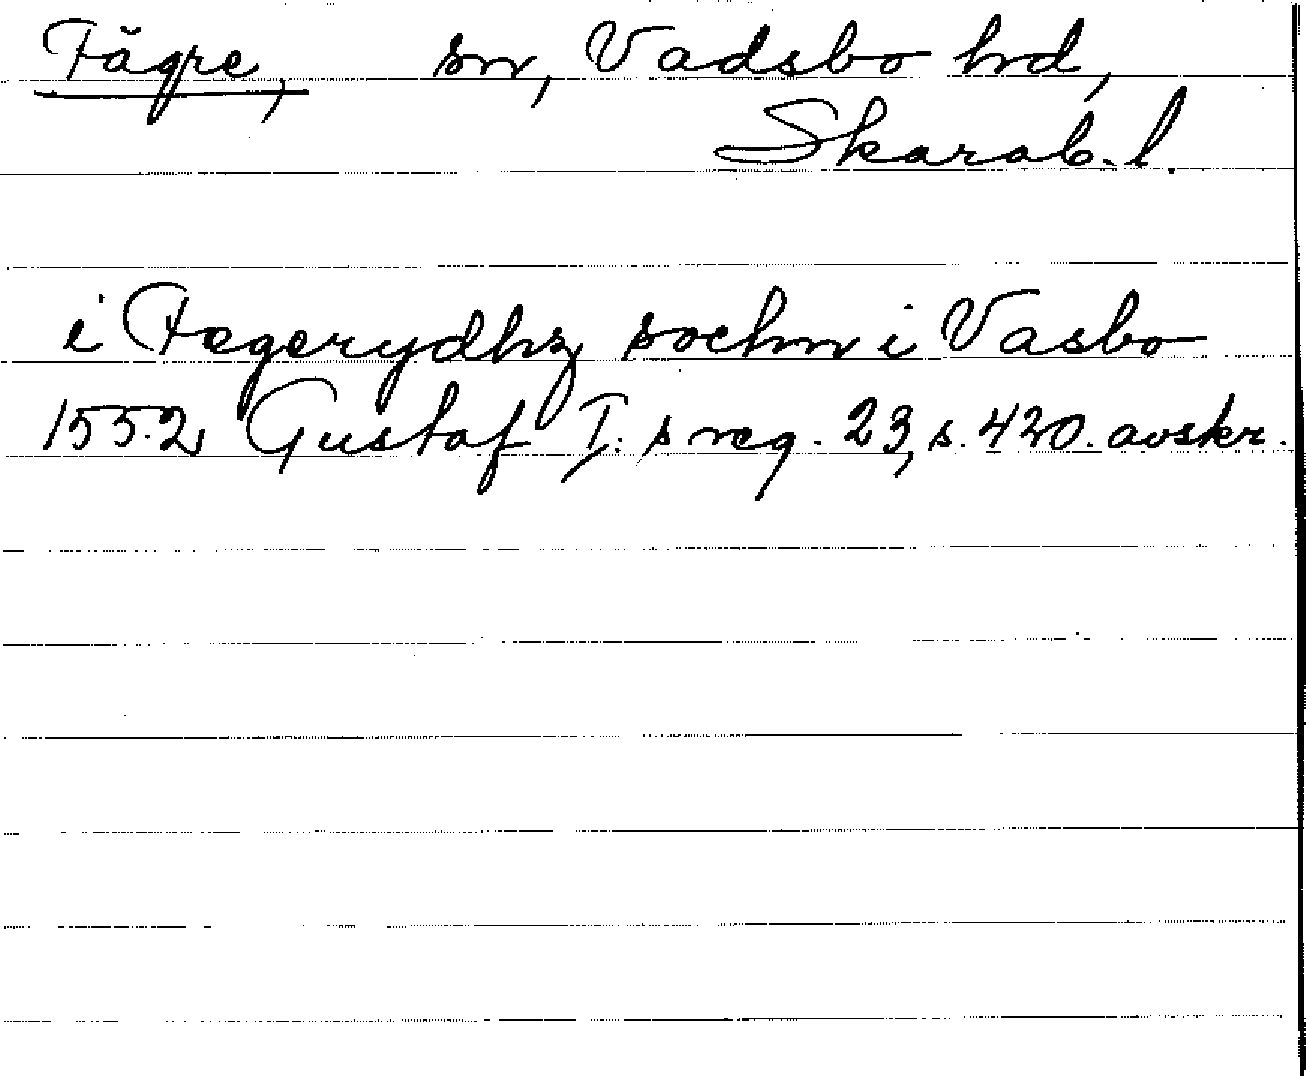 Fägre, sn, Vadsbo hd,
Skarab. l.
i Fægerydhz sochn i Vasbo
1552 Gustaf I:s reg. 23, s. 420. avskr.